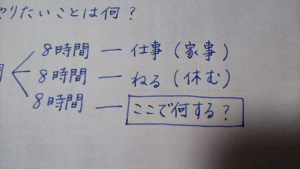 やりたいことは何？
8時間 — 仕事（家事）
8時間 — ねる（休む）
8時間 — ここで何する？